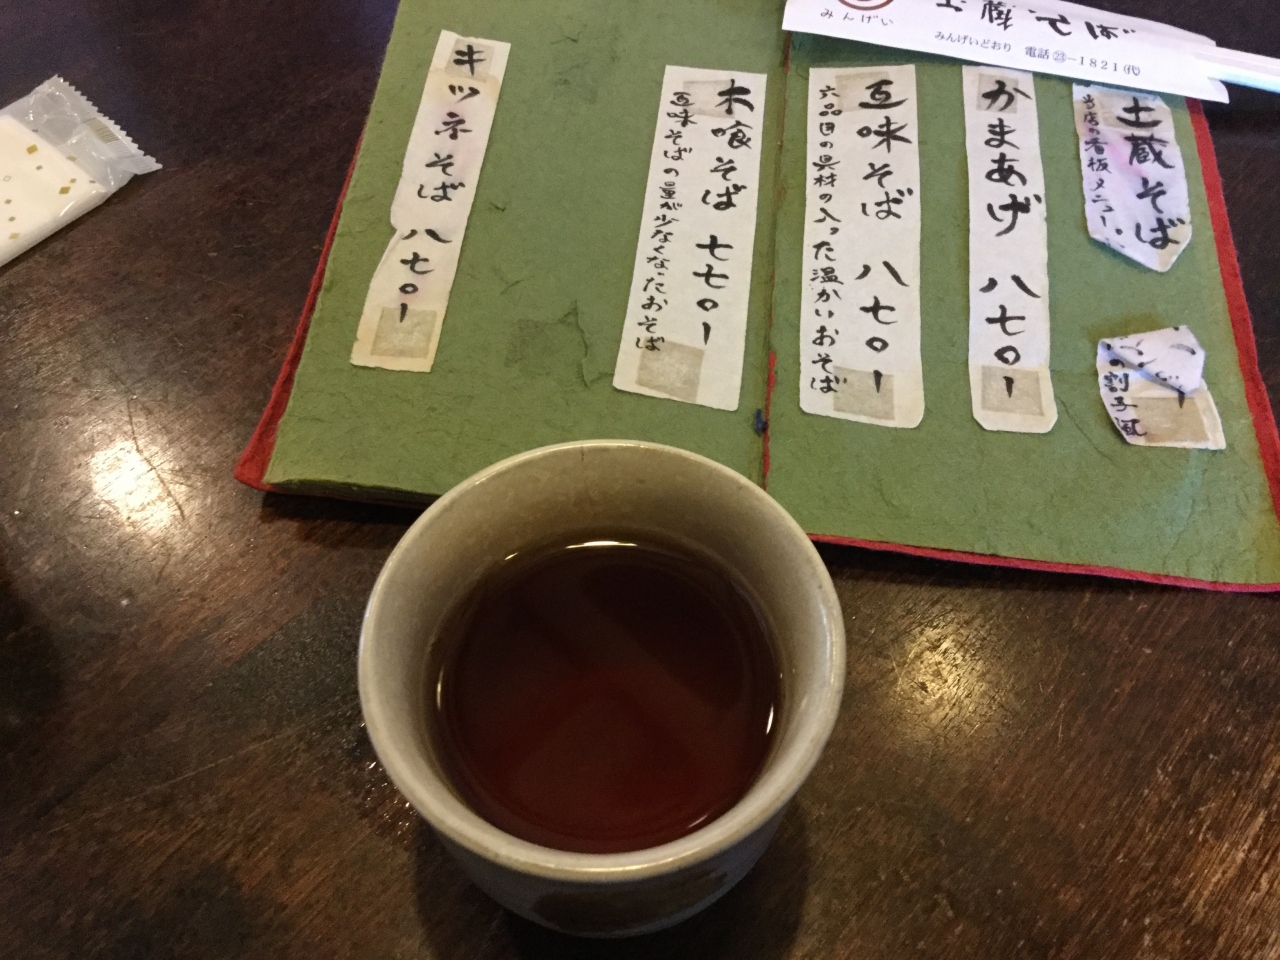 みんげい
土蔵そば
みんげいどおり 電話㉓-1821㈹
土蔵そば
当店の看板メニュー
の割子風
かまあげ 八七〇ー
五味そば 八七〇ー
六品目の具材の入った温かいおそば
木喰そば 七七〇ー
五味そばの量が少なくなったおそば
キツネそば 八七〇ー